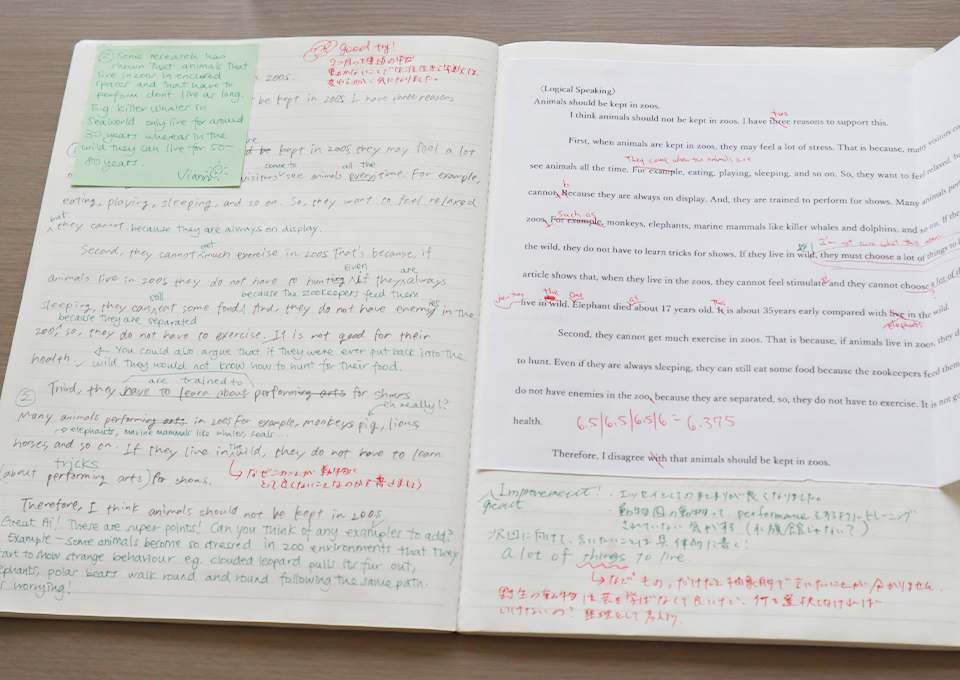 ② Some research has
shown that animals that
live in zoos in enclosed
spaces and that have to
perform don't live as long.
E.g killer whales in
Seaworld only live for around
30 years whereas in the
wild they can live for 50-
years.
Viann
good try!
zoos.
be kept in zoos I have three reasons
be kept in zoos they may feel a lot
come to all the
visitors see animals every time. For example,
eating, playing, sleeping, and so on. So, they want to feel relaxed
but
they cannot because they are always on display.
get
Second, they cannot much exercise in zoos That's because, if
Even are
animals live in zoos they do not have to hunting If they always
still because the zookeepers feed them
sleeping, they can eat some food find, they do not have enemies in the
because they are separated
zoos, so, they do not have to exercise. It is not good for their
health. ← You could also argue that if they were ever put back into the
wild they would not know how to hunt for their food.
are trained to
② Third, they have to learn about performing arts for shows
eh really!?
Many animals performing arts in zoos For example, monkeys pig, lions
elephants, marine mammals like whales, seals...
horses, and so on. If they live in the wild, they do not have to learn
tricks
(about performing arts) for shows.
Therefore, I think animals should not be kept in zoos
Great Ai! These are super points! Can you think of any examples to add?
Example - Some animals become so stressed in zoo environments that they
start to show strange behaviour eg. clouded leopard pulls its fur out,
elephants, polar bears walk round and round following the same path.
worrying!
〈Logical Speaking〉
Animals should be kept in zoos.
two
I think animals should not be kept in zoos. I have three reasons to support this.
First, when animals are kept in zoos, they may feel a lot of stress. That is because, many visitors
They come when the animals are
see animals all the time. For example, eating, playing, sleeping, and so on. So, they want to feel relaxed,
b
cannot. Because they are always on display. And, they are trained to perform for shows. Many animals
such as
zoos. For example, monkeys, elephants, marine mammals like killer whales and dolphins, and so on. If
I'm not sure what this means
the wild, they do not have to learn tricks for shows. If they live in wild, they must choose a lot of things to
article shows that, when they live in the zoos, they cannot feel stimulate and they cannot choose a lot of
when they the One at This
live in wild. Elephant died about 17 years old. It is about 35years early compared with live in the wild.
elephants
Second, they cannot get much exercise in zoos. That is because, if animals live in zoos, they
to hunt. Even if they are always sleeping, they can still eat some food because the zookeepers feed them
do not have enemies in the zoo, because they are separated, so, they do not have to exercise. It is not
health. 6.5/6.5/6.5/6 = 6.375
Therefore, I disagree with that animals should be kept in zoos.
great Improvement! ・エッセイとしてのまとまりが良くなりました。
・動物園の動物って performance するようにトレーニング
されていない気がする（水族館じゃない？）
次回に向けて、言いたいことは具体的に書く！
a lot of things to live
"もの"だけだと抽象的で言いたいことが分かりません
野生の動物は芸を学ばなくて良いけど、何を選択しなければ
いけないの？